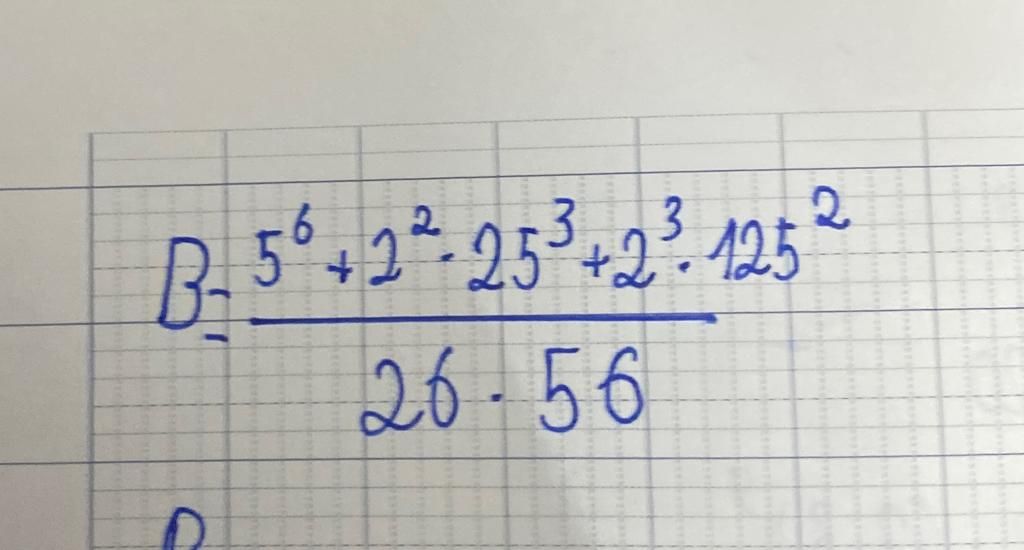 B = \frac{5^6 + 2^2 \cdot 25^3 + 2^3 \cdot 125^2}{26 \cdot 56}